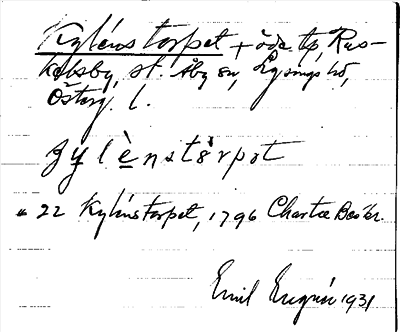 Kylénstorpet + öde tp, Rus-
kelsby, St. Åby sn, Lysings hd,
Österg. l.
ɟylènstòrpət
22 Kylénstorpet, 1796 Charta
Emil 1931